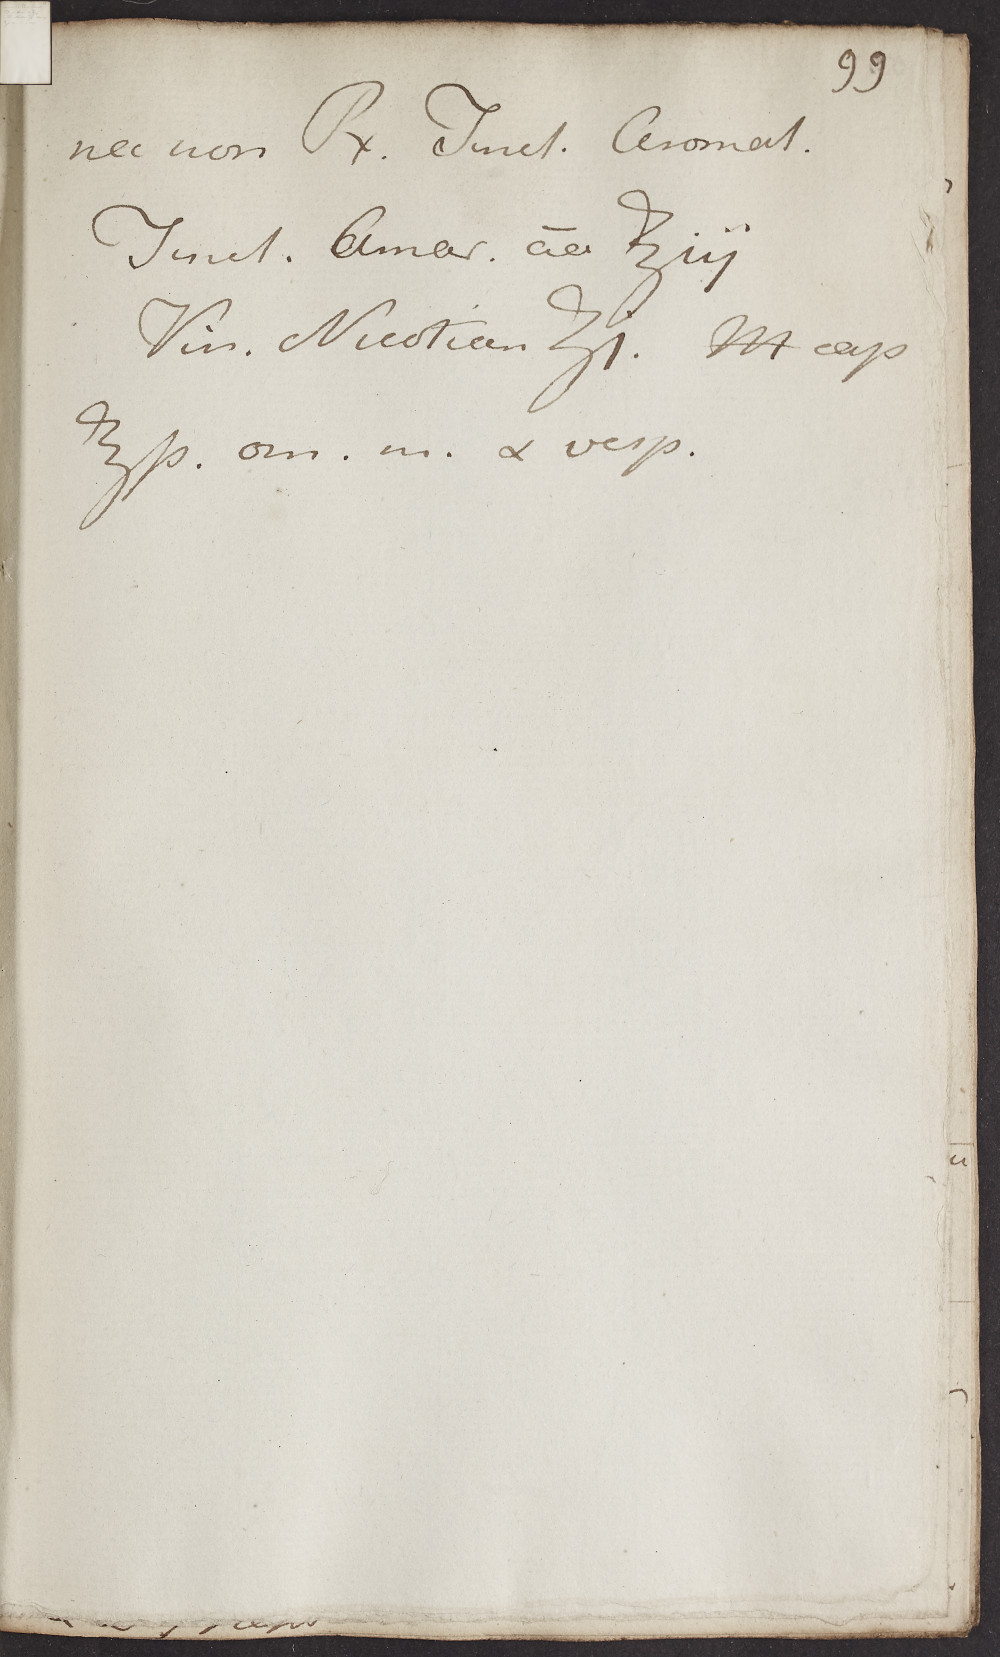 99
nec non ℞. Tinct. Aromat.
Tinct. Amar. āa ℥iij
Vin. Nicotian ℥j. M cap
℥ß. om. m. & vesp.